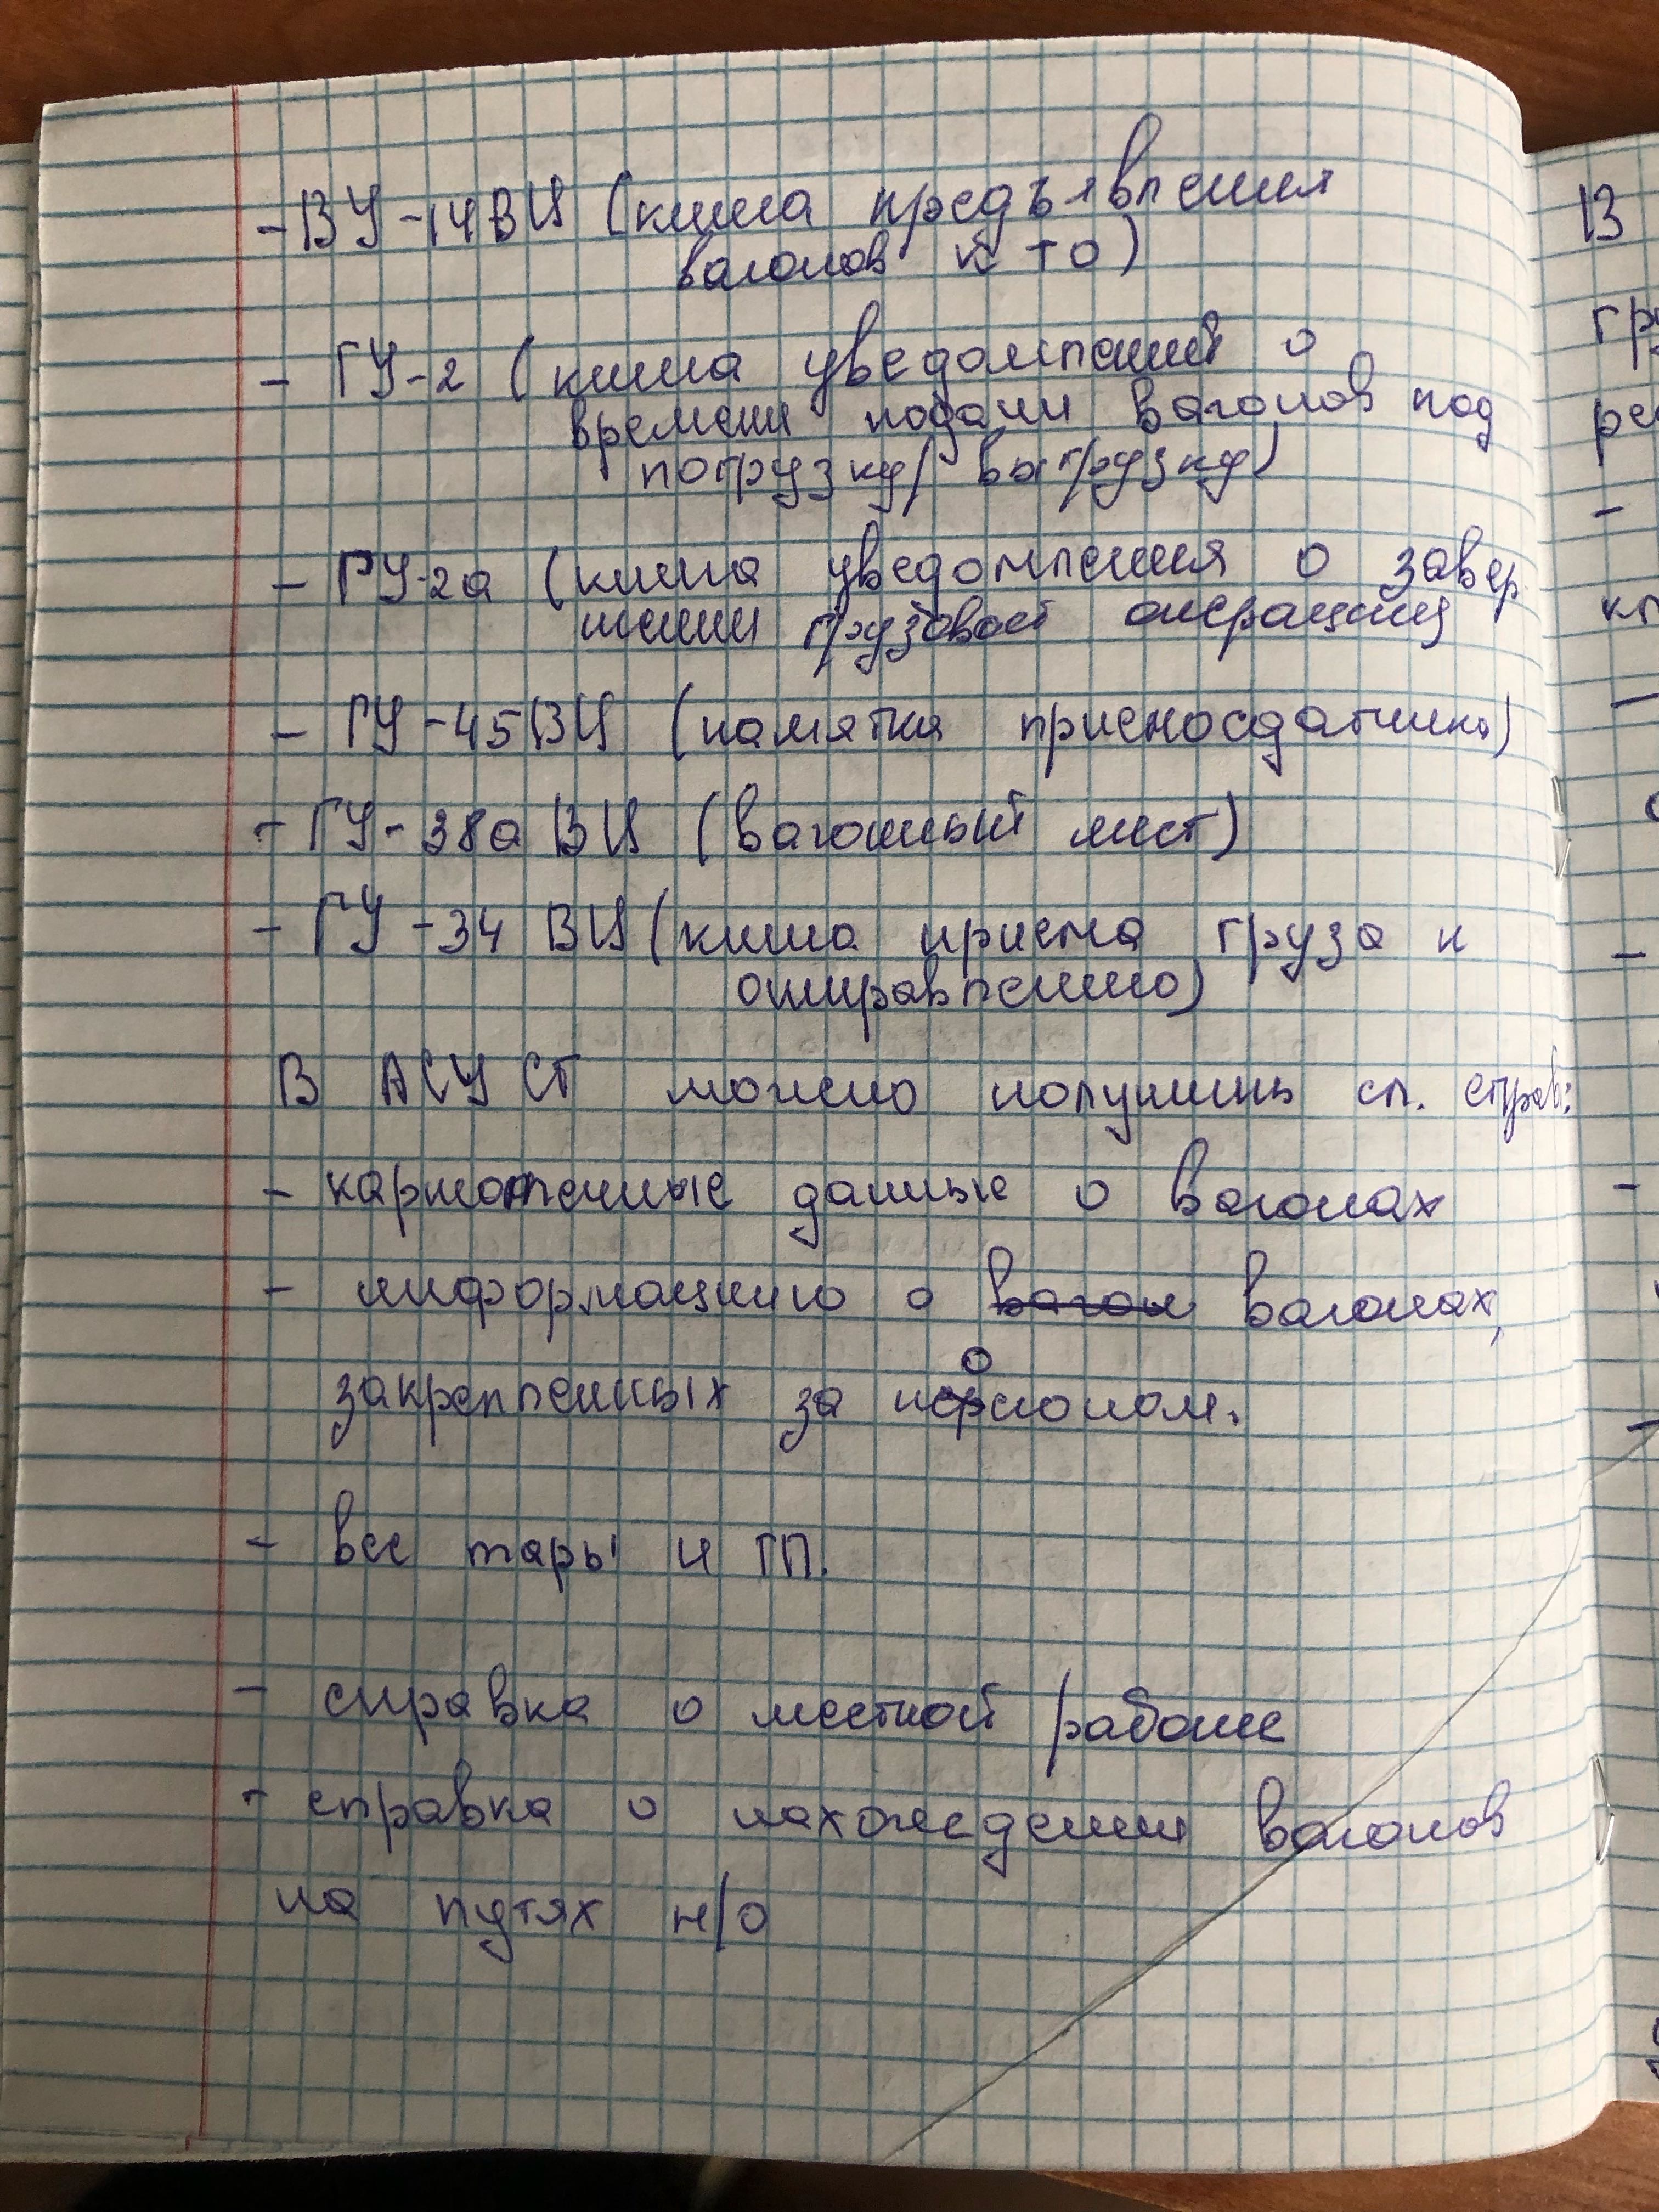 - ВУ-14ВЦ (книга предъявления
вагонов к ТО)
- ГУ-2 (книга уведомлений о
времени подачи вагонов под
погрузку/выгрузку)
- ГУ-2а (книга уведомления о завер
шении грузовой операции
- ГУ-45ВЦ (памятка приемосдатчика)
- ГУ-38а ВЦ (вагонный лист)
- ГУ-34 ВЦ (книга приема груза к
отправлению)
В АСУ СТ можно получить сл. справ:
- картотечные данные о вагонах
- информацию о вагон вагонах,
закрепленных за полигоном.
- все тары и ГП.
- справка о местной работе
- справка о нахождении вагонов
на путях н/о
В
гру
-
-
-
-